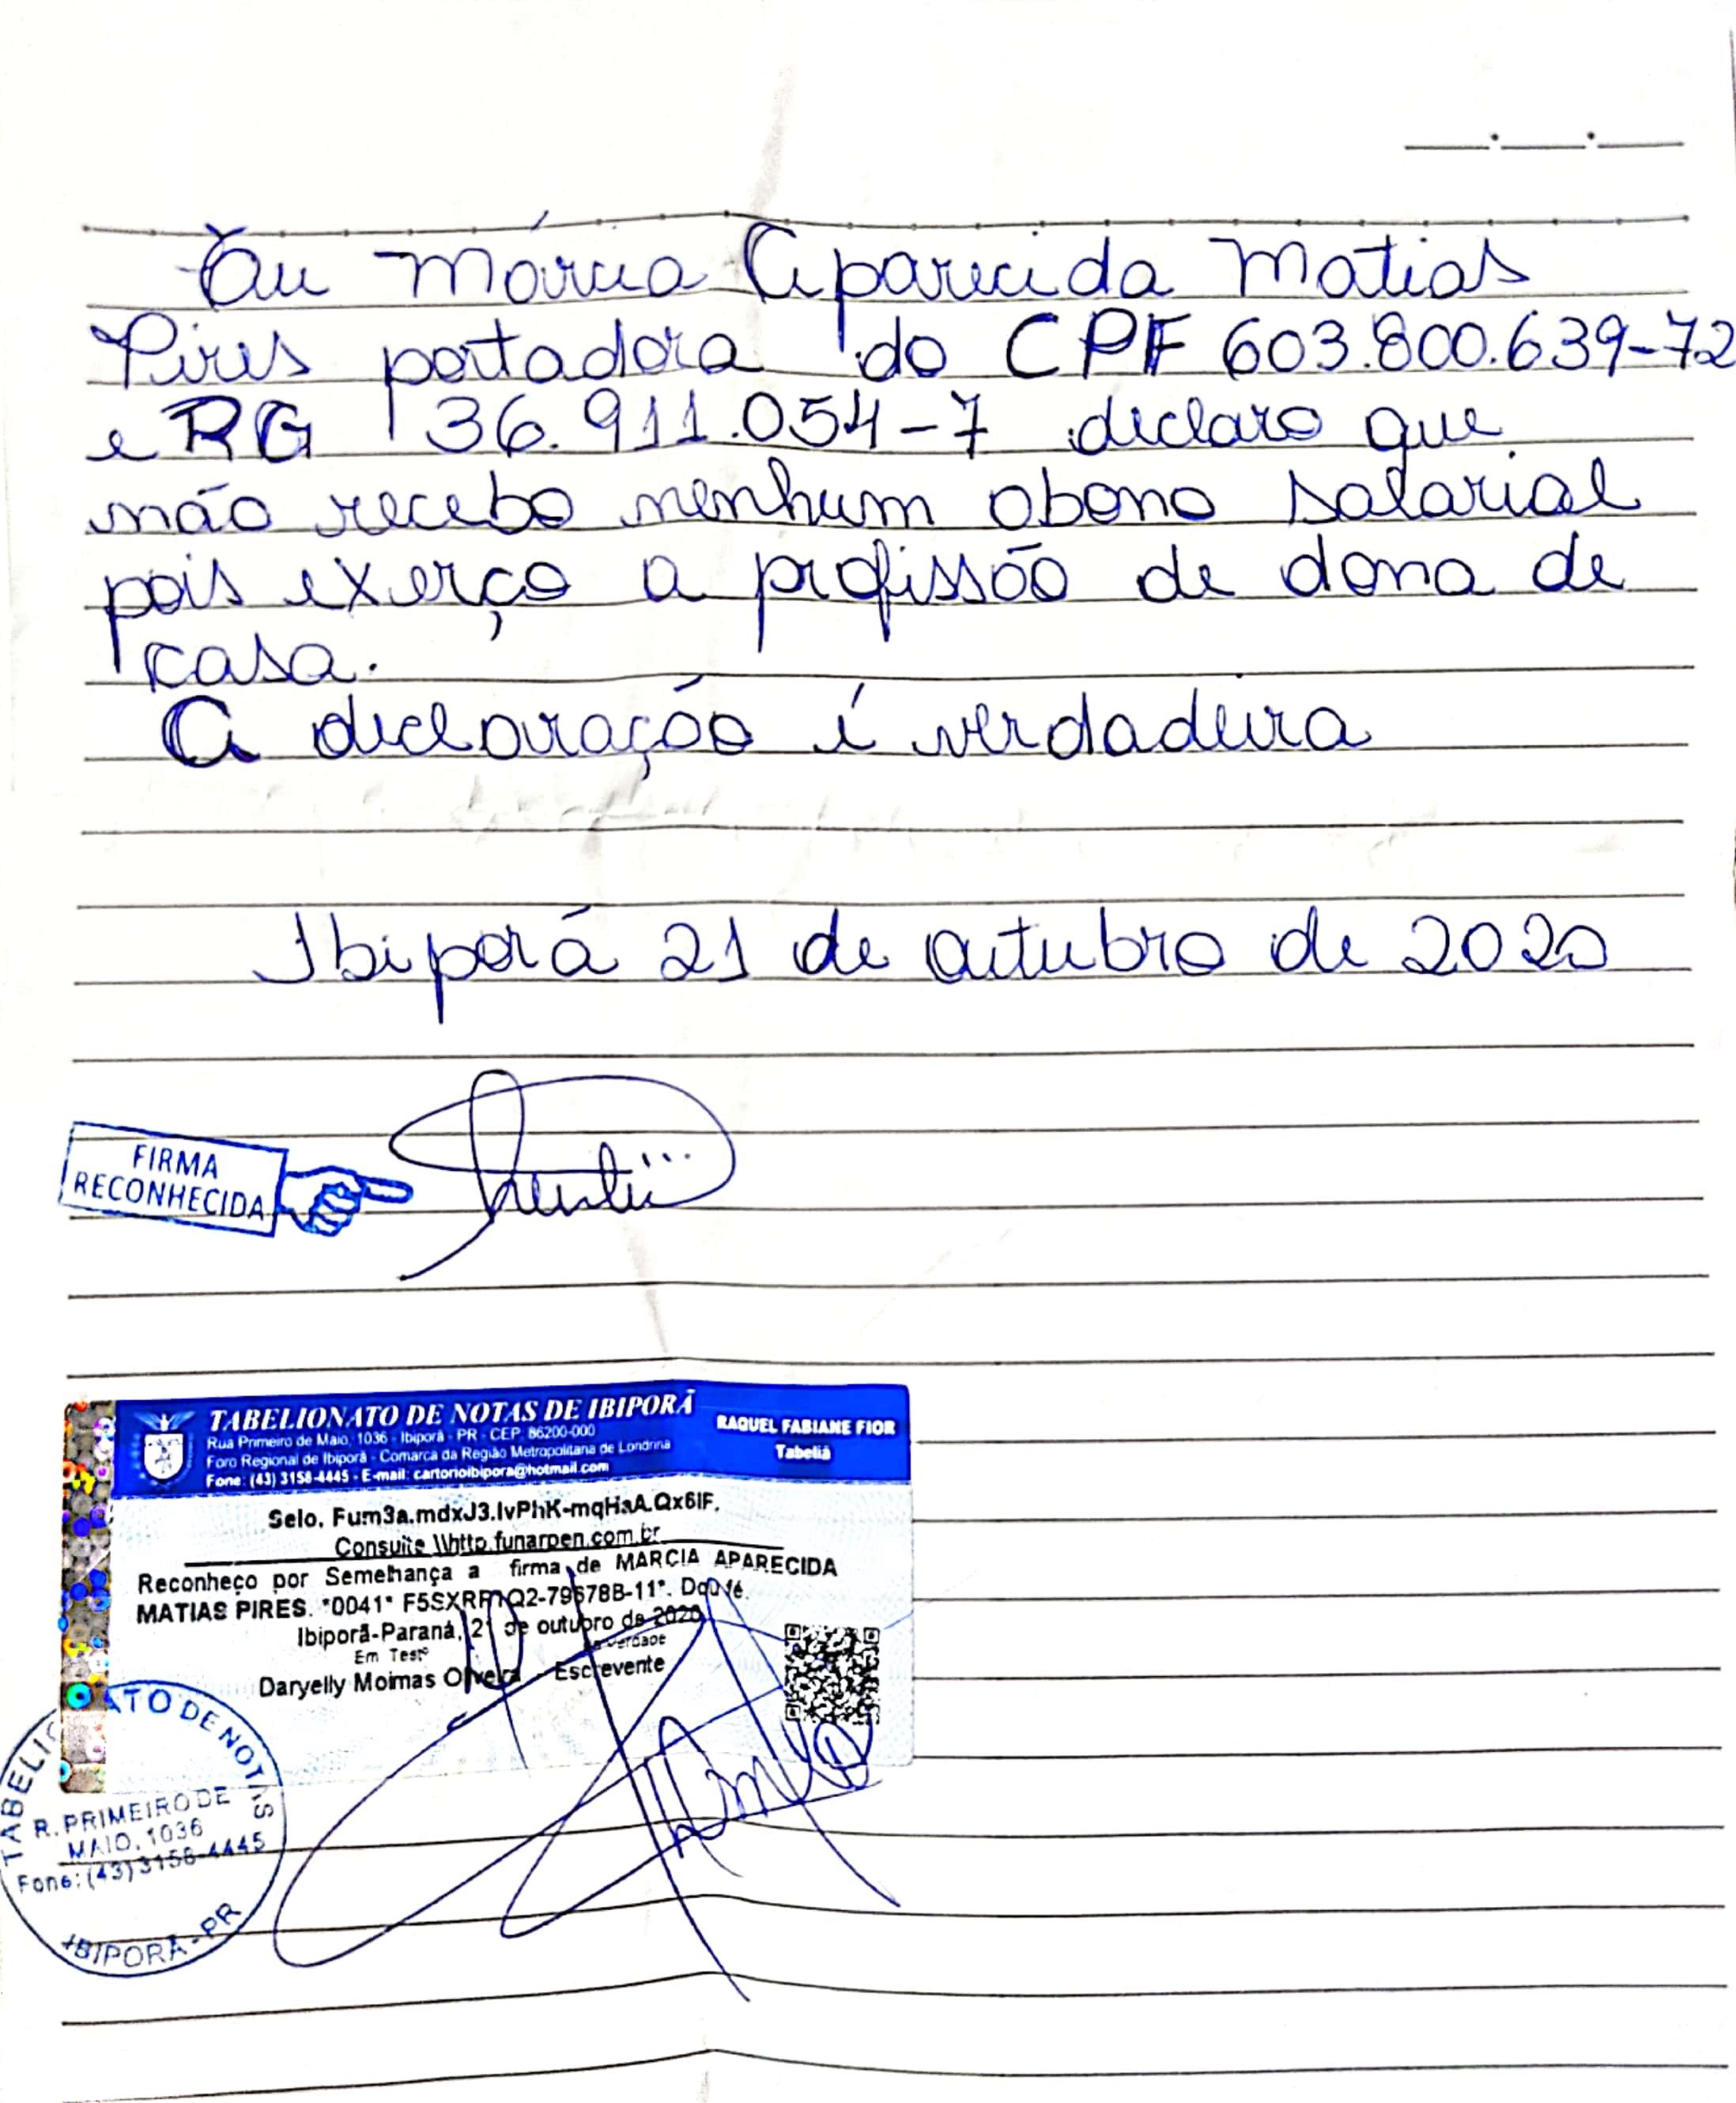 Eu Márcia Aparecida Matias
Pires portadora do CPF 603.800.639-72
e RG 36.911.054-7 declaro que
não recebo nenhum abono salarial
pois exerço a profissão de dona de
casa.
A declaração é verdadeira
Ibiporã 21 de outubro de 2020
FIRMA
RECONHECIDA
TABELIONATO DE NOTAS DE IBIPORÃ
Rua Primeiro de Maio, 1036 - Ibiporã - PR - CEP. 86200-000
Foro Regional de Ibiporã - Comarca da Região Metropolitana de Londrina
Fone: (43) 3158-4445 - E-mail: cartorioibipora@hotmail.com
RAQUEL FABIANE FIOR
Tabeliã
Selo. Fum3a.mdxJ3.IvPhK-mqHaA.Qx6IF.
Consulte \\http.funarpen.com.br
Reconheço por Semelhança a firma de MARCIA APARECIDA
MATIAS PIRES. *0041* Dou fé.
Ibiporã-Paraná, 21 de outubro de 2020
Em Testº da verdade
Daryelly Moimas Oliveira - Escrevente
TABELIONATO DE NOTAS
R. PRIMEIRO DE
MAIO, 1036
Fone: (43) 3158-4445
IBIPORÃ - PR